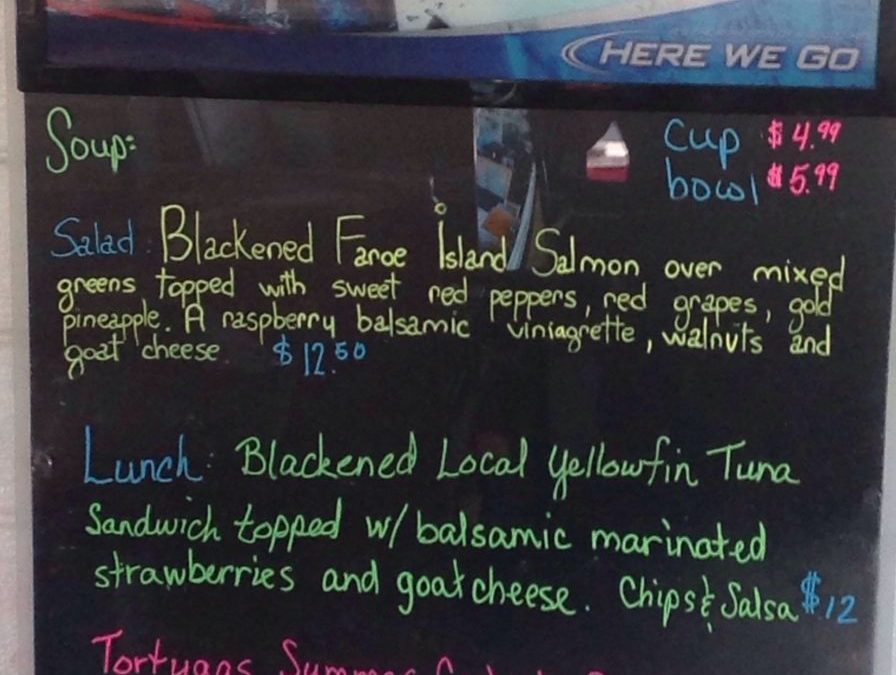 HERE WE GO
Soup:
cup $4.99
bowl $5.99
Salad: Blackened Faroe Island Salmon over mixed
greens topped with sweet red peppers, red grapes, gold
pineapple. A raspberry balsamic viniagrette, walnuts and
goat cheese $12.50
Lunch: Blackened Local Yellowfin Tuna
Sandwich topped w/ balsamic marinated
strawberries and goat cheese. Chips & Salsa $12
Tortugas Summer